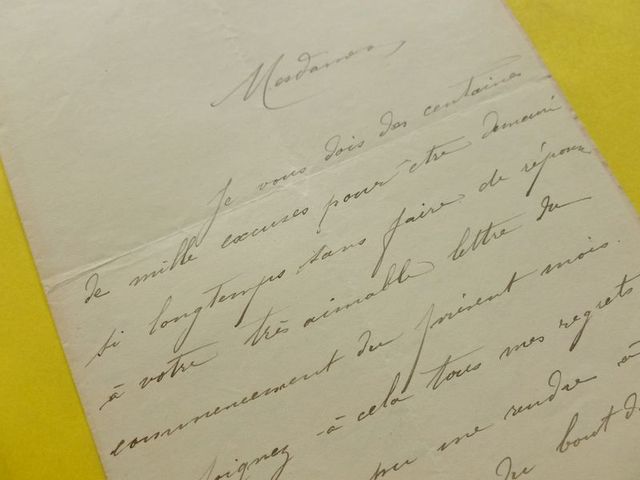 Mesdames
Je vous dois des centaines
de mille excuses pour être demeuré
si longtemps sans faire de réponse
à votre très aimable lettre du
commencement du présent mois.
Joignez à cela tous mes regrets
pu me rendre à
du bout de